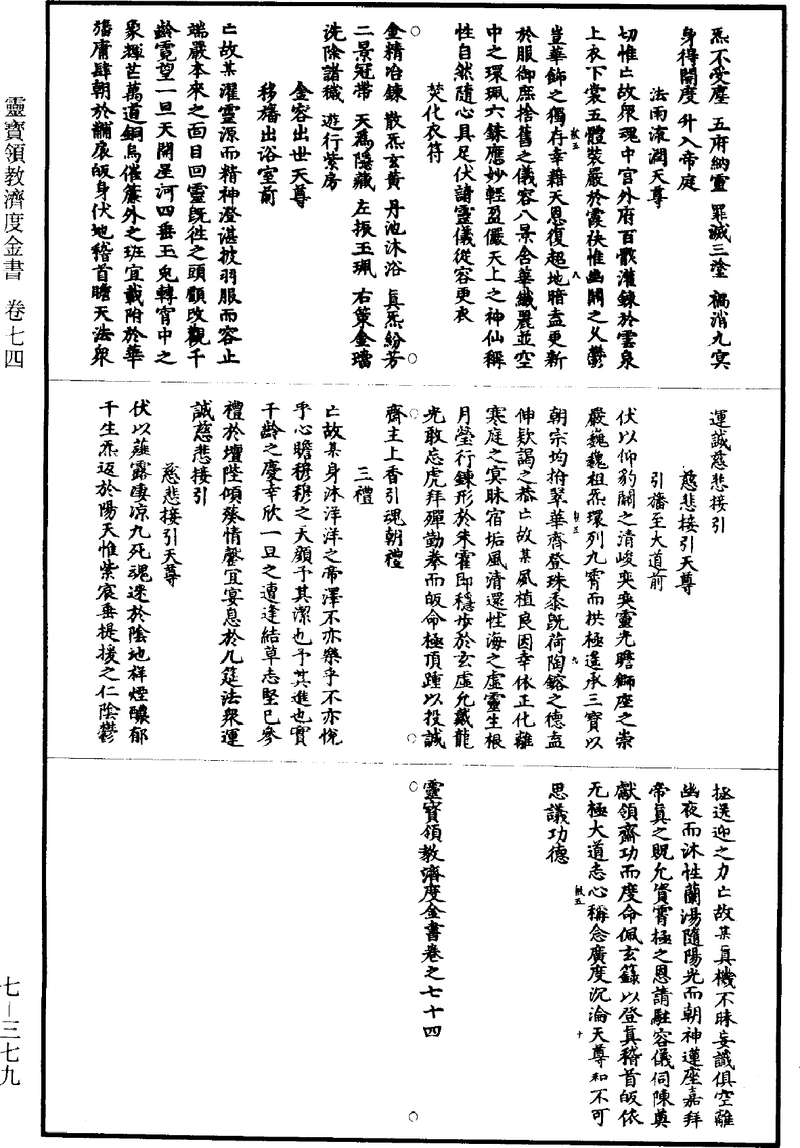 炁不受塵　五府納靈　罪滅三塗　禍消九冥
身得開度　升入帝庭
法雨流潤天尊
切惟亡故衆魂中宫外府百骸灌鍊於雲泉
上衣下裳五體裝嚴於霞袂惟幽關之乆鬱
豈華飾之獨存幸藉天恩復超地暗盍更新
於服御庶捨舊之儀容八景舍華纖麗並空
中之環珮六銖應妙輕盈儼天上之神仙稱
性自然隨心具足伏請靈儀從容更衣
焚化衣符
金精冶鍊　散炁玄黄　丹池沐浴　真炁紛芳
二景冠帶　天爲隱藏　左振玉珮　右策金璫
洗陰諸穢　遊行紫房
金容出世天尊
移旛出浴室前
亡故某濯靈源而精神澄湛披羽服而容止
端嚴本來之面目回靈旣徃之頭顱改觀千
齡霓望一旦天開星河四垂玉兔轉宵中之
象輝芒萬道銅烏催簾外之班宜戴附於華
旛庸肆朝於黼扆皈身伏地稽首瞻天法衆
運誠慈悲接引
慈悲接引天尊
引旛至大道前
伏以仰豹關之清峻奕奕靈光瞻獅座之崇
嚴巍巍祖炁環列九霄而拱極遥承三寶以
朝宗均拊翠華齊登珠黍旣荷陶鎔之德盍
伸欵謁之恭亡故某夙植良因幸依正化離
寒庭之冥昧宿垢風清還性海之虛靈生根
月瑩行鍊形於朱霍即穩步於玄虛允戴龍
光敢忘虎拜殫勤拳而皈命極頂踵以投誠
齊主上香引魂朝禮
三禮
亡故某身沐洋洋之帝澤不亦樂乎不亦悅
乎心瞻穆穆之天顔予其潔也予其進也實
千齡之慶幸欣一旦之遭逢結草志堅已參
禮於壇陛傾葵情罄宜宴息於几筵法衆運
誠慈悲接引
慈悲接引天尊
伏以薤露凄凉九死魂迷於陰地祥煙醲郁
千生炁返於陽天惟紫宸垂提援之仁陰鬱
拯送迎之力亡故某真機不昧妄識俱空離
幽夜而沐性蘭湯隨陽光而朝神蓮座嘉拜
帝真之貺允資霄極之恩請駐容儀伺陳奠
獻領齋功而度命佩玄籙以登真稽首皈依
无極大道志心稱念廣度沉淪天尊和不可
思議功德
靈寶領教濟度金書卷之七十四
靈寶領教濟度金書　卷七四
七—三七九